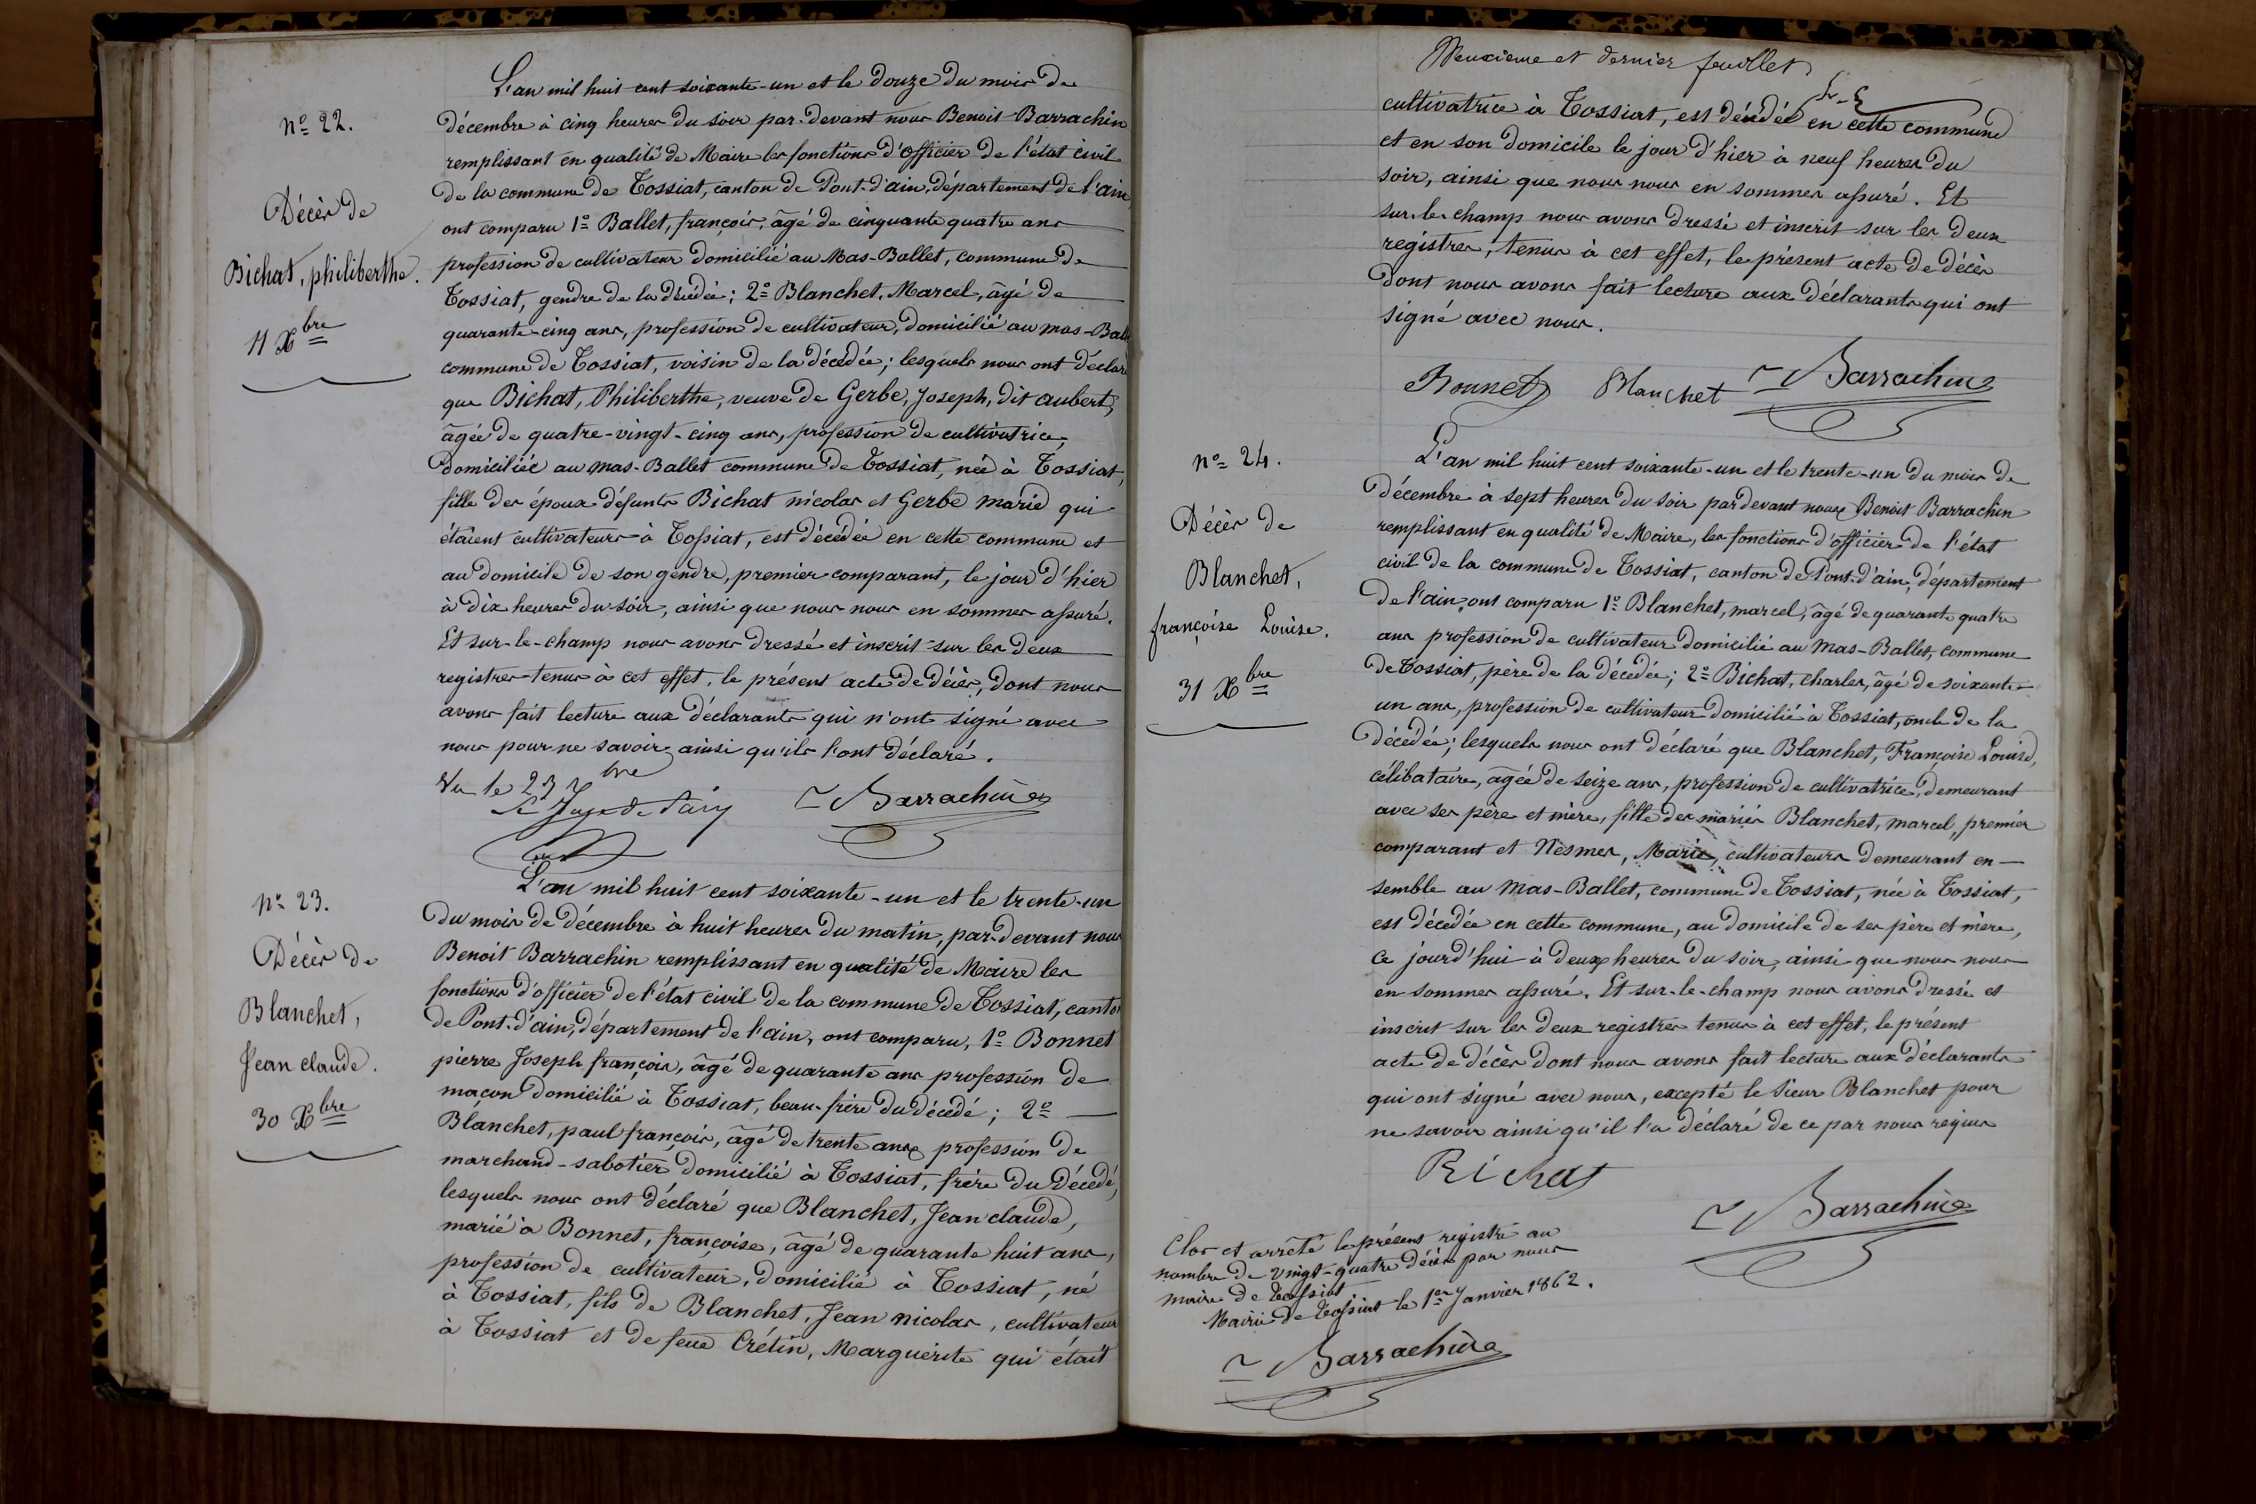 nº 22.
Décès de
Bichat, philiberthe.
11 Xbre
L'an mil huit cent soixante-un et le douze du mois de
décembre à cinq heures du soir par-devant nous Benoit Barrachin
remplissant en qualité de Maire les fonctions d'officier de l'état civil
de la commune de Tossiat, canton de Pont-d'ain, département de l'ain
ont comparu 1º Ballet, françois, âgé de cinquante quatre ans
profession de cultivateur domicilié au Mas-Ballet, commune de
Tossiat, gendre de la décédée; 2º Blanchet, Marcel, âgé de
quarante-cinq ans, profession de cultivateur, domicilié au mas-Ball
commune de Tossiat, voisin de la décédée; lesquels nous ont déclaré
que Bichat, Philiberthe, veuve de Gerbe, Joseph, dit aubert,
âgée de quatre-vingt-cinq ans, profession de cultivatrice,
domiciliée au mas-Ballet commune de Tossiat, née à Tossiat,
fille des époux défunts Bichat nicolas et Gerbe marie qui
étaient cultivateurs à Tossiat, est décédée en cette commune et
au domicile de son gendre, premier comparant, le jour d'hier
à dix heures du soir, ainsi que nous nous en sommes assuré.
Et sur-le-champ nous avons dressé et inscrit sur les deux
registres tenus à cet effet, le présent acte de décès, dont nous
avons fait lecture aux déclarants qui n'ont signé avec
nous pour ne savoir ainsi qu'ils l'ont déclaré.
Vu le 23
Le Juge de Paix
Barrachin
nº 23.
Décès de
Blanchet,
Jean claude.
30 Xbre
L'an mil huit cent soixante-un et le trente-un
du mois de décembre à huit heures du matin, par-devant nous
Benoit Barrachin remplissant en qualité de Maire les
fonctions d'officier de l'état civil de la commune de Tossiat, canton
de Pont-d'ain, département de l'ain, ont comparu, 1º Bonnet
pierre Joseph françois, âgé de quarante ans profession de
maçon domicilié à Tossiat, beau-frère du décédé; 2º
Blanchet, paul françois, âgé de trente ans profession de
marchand-sabotier domicilié à Tossiat, frère du décédé,
lesquels nous ont déclaré que Blanchet, Jean claude,
marié à Bonnet, françoise, âgé de quarante huit ans,
profession de cultivateur, domicilié à Tossiat, né
à Tossiat, fils de Blanchet, Jean nicolas, cultivateur
à Tossiat et de feue Crétin, Marguerite qui était
Deuxieme et dernier feuillet
cultivatrice à Tossiat, est décédé en cette commune
et en son domicile le jour d'hier à neuf heures du
soir, ainsi que nous nous en sommes assuré. Et
sur-le-champ nous avons dressé et inscrit sur les deux
registres, tenus à cet effet, le présent acte de décès
dont nous avons fait lecture aux déclarants qui ont
signé avec nous.
Bonnet Blanchet Barrachin
nº 24.
Décès de
Blanchet,
françoise Louise.
31 Xbre
L'an mil huit cent soixante-un et le trente-un du mois de
décembre à sept heures du soir par devant nous Benoit Barrachin
remplissant en qualité de Maire, les fonctions d'officier de l'état
civil de la commune de Tossiat, canton de Pont-d'ain, département
de l'ain, ont comparu 1º Blanchet, marcel, âgé de quarante quatre
ans profession de cultivateur domicilié au Mas-Ballet, commune
de Tossiat, père de la décédée; 2º Bichat, charles, âgé de soixante-
un ans, profession de cultivateur domicilié à Tossiat, oncle de la
décédée; lesquels nous ont déclaré que Blanchet, Françoise Louise,
célibataire, âgée de seize ans, profession de cultivatrice, demeurant
avec ses père et mère, fille des mariés Blanchet, marcel, premier
comparant et Nesmes, Marie, cultivateurs demeurant en-
semble au Mas-Ballet, commune de Tossiat, née à Tossiat,
est décédée en cette commune, au domicile de ses père et mère,
ce jourd'hui à deux heures du soir, ainsi que nous nous
en sommes assuré. Et sur-le-champ nous avons dressé et
inscrit sur les deux registres tenus à cet effet, le présent
acte de décès dont nous avons fait lecture aux déclarants
qui ont signé avec nous, excepté le sieur Blanchet pour
ne savoir ainsi qu'il l'a déclaré de ce par nous requis
Bichat
Barrachin
Clos et arrêté le présent registre au
nombre de vingt-quatre décès par nous
maire de Tossiat
Mairie de Tossiat le 1er Janvier 1862.
Barrachin